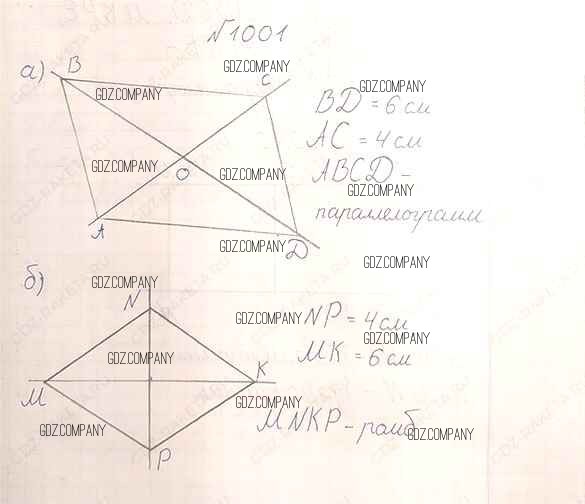 №1001
GDZ.COMPANY
а) B
C
GDZ.COMPANY
GDZ.COMPANY
BD = 6 см
AC = 4 см
GDZ.COMPANY
O
GDZ.COMPANY
ABCD –
GDZ.COMPANY
параллелограмм
A
GDZ.COMPANY
D
GDZ.COMPANY
б)
GDZ.COMPANY
N
GDZ.COMPANY
NP = 4 см
GDZ.COMPANY
GDZ.COMPANY
MK = 6 см
K
M
GDZ.COMPANY
MNKP – ромб
GDZ.COMPANY
GDZ.COMPANY
P